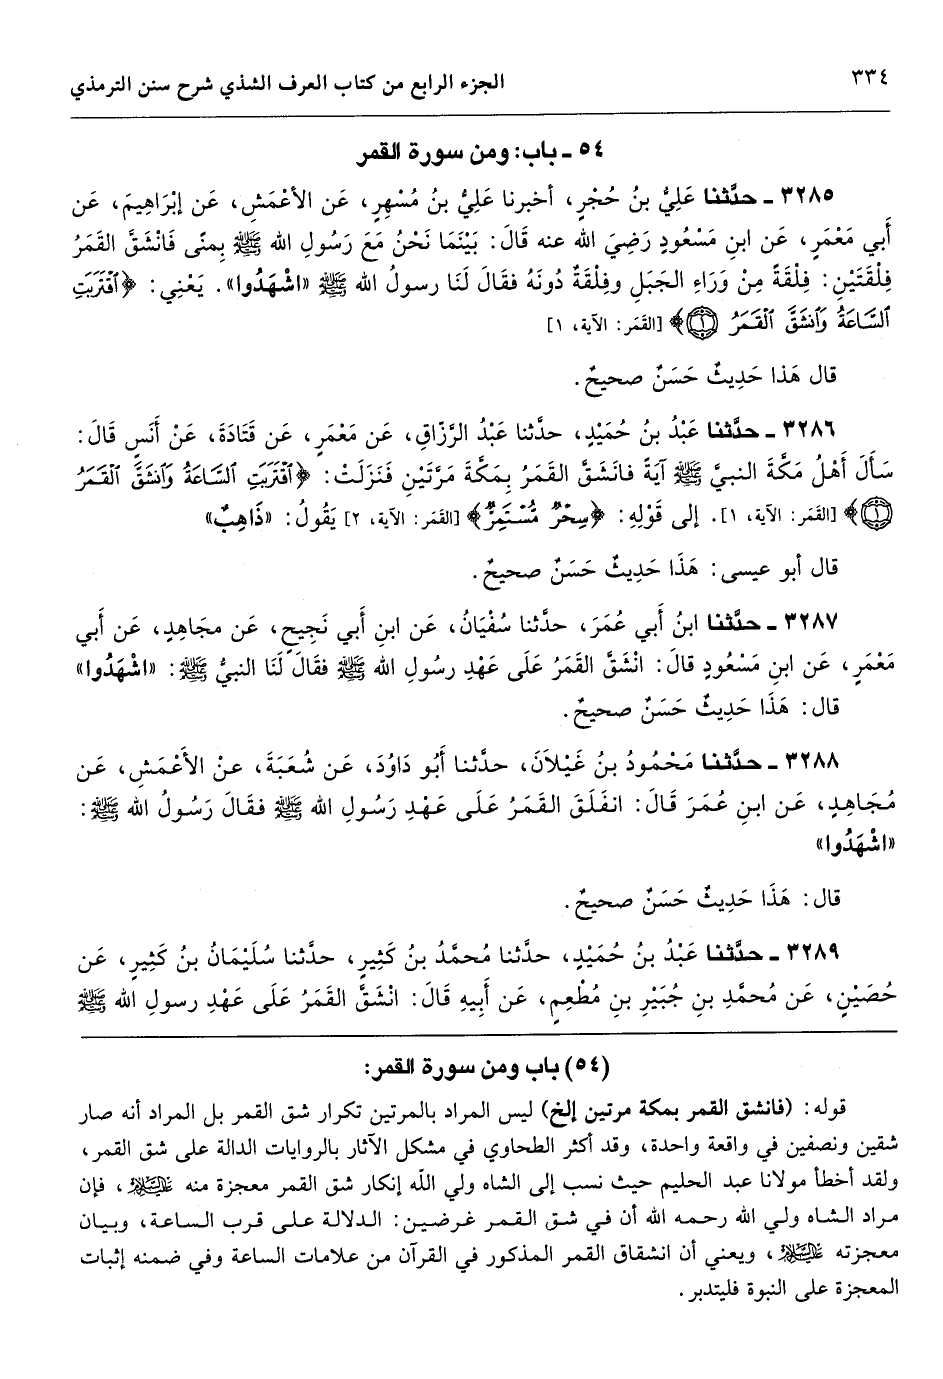 ٣٣٤
الجزء الرابع من كتاب العرف الشذي شرح سنن الترمذي
٥٤ ـ باب: ومن سورة القمر
٣٢٨٥ ـ حدَّثنا عَلِيُّ بنُ حُجْرٍ، أخبرنا عَلِيُّ بنُ مُسْهِرٍ، عَن الأعْمَشِ، عَن إبْرَاهِيمَ، عَن
أبي مَعْمَرٍ، عَن ابنِ مَسْعُودٍ رَضِيَ الله عنه قَالَ: بَيْنَمَا نَحْنُ مَعَ رَسُولِ الله ﷺ بِمِنًى فَانْشَقَّ القَمَرُ
فِلْقَتَيْنِ: فِلْقَةً مِنْ وَرَاءِ الجَبَلِ وفِلْقَةٌ دُونَهُ فقَالَ لَنَا رسولُ الله ﷺ «اشْهَدُوا». يَعْنِي: ﴿ٱقْتَرَبَتِ
ٱلسَّاعَةُ وَٱنشَقَّ ٱلْقَمَرُ ۝١﴾ [القَمَر: الآية، ١]
قال هَذا حَدِيثٌ حَسَنٌ صحيحٌ.
٣٢٨٦ ـ حدَّثنا عَبْدُ بنُ حُمَيْدٍ، حدَّثنا عَبْدُ الرَّزَّاقِ، عَن مَعْمَرٍ، عَن قَتَادَةَ، عَنْ أَنَسٍ قَالَ:
سَأَلَ أَهْلُ مَكَّةَ النبيَّ ﷺ آيَةً فانَشَقَّ القَمَرُ بِمَكَّةَ مَرَّتَيْنِ فَنَزَلَتْ: ﴿ٱقْتَرَبَتِ ٱلسَّاعَةُ وَٱنشَقَّ ٱلْقَمَرُ
۝١﴾ [القَمَر: الآية، ١]. إلى قَوْلِهِ: ﴿سِحْرٌ مُّسْتَمِرٌّ﴾ [القَمَر: الآية، ٢] يَقُولُ: «ذَاهِبٌ»
قال أبو عيسى: هَذَا حَدِيثٌ حَسَنٌ صحيحٌ.
٣٢٨٧ ـ حدَّثنا ابنُ أبي عُمَرَ، حدَّثنا سُفْيَانُ، عَن ابنِ أَبي نَجِيحٍ، عَن مجَاهِدٍ، عَن أبي
مَعْمَرٍ، عَن ابنِ مَسْعُودٍ قالَ: انْشَقَّ القَمَرُ عَلَى عَهْدِ رسولِ الله ﷺ فقَالَ لَنَا النبيُّ ﷺ: «اشْهَدُوا»
قال: هَذَا حَدِيثٌ حَسَنٌ صحيحٌ.
٣٢٨٨ ـ حدَّثنا مَحْمُودُ بنُ غَيْلاَنَ، حدَّثنا أَبُو دَاوُدَ، عَن شُعَبَةَ، عنْ الأعْمَشِ، عَن
مُجَاهِدٍ، عَن ابنِ عُمَرَ قَالَ: انفَلَقَ القَمَرُ عَلَى عَهْدِ رَسُولِ الله ﷺ فقَالَ رَسُولُ الله ﷺ:
«اشْهَدُوا»
قال: هَذَا حَدِيثٌ حَسَنٌ صحيحٌ.
٣٢٨٩ ـ حدَّثنا عَبْدُ بنُ حُمَيْدٍ، حدَّثنا مُحمَّدُ بنُ كَثِيرٍ، حدَّثنا سُلَيْمَانُ بنُ كَثِيرٍ، عَن
حُصَيْنٍ، عَن مُحمَّدِ بنِ جُبَيْرِ بنِ مُطْعِمٍ، عَن أَبِيهِ قَالَ: انْشَقَّ القَمَرُ عَلَى عَهْدِ رسولِ الله ﷺ
(٥٤) باب ومن سورة القمر:
قوله: (فانشق القمر بمكة مرتين إلخ) ليس المراد بالمرتين تكرار شق القمر بل المراد أنه صار
شقين ونصفين في واقعة واحدة، وقد أكثر الطحاوي في مشكل الآثار بالروايات الدالة على شق القمر،
ولقد أخطأ مولانا عبد الحليم حيث نسب إلى الشاه ولي اللّه إنكار شق القمر معجزة منه عليه السلام، فإن
مراد الشاه ولي الله رحمه الله أن في شق القمر غرضين: الدلالة على قرب الساعة، وبيان
معجزته عليه السلام، ويعني أن انشقاق القمر المذكور في القرآن من علامات الساعة وفي ضمنه إثبات
المعجزة على النبوة فليتدبر.